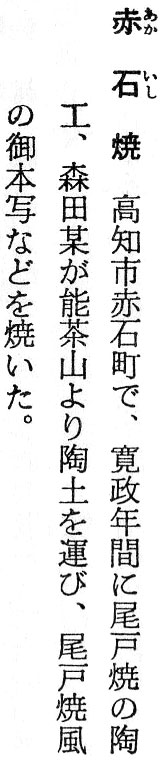 赤石焼　高知市赤石町で、寛政年間に尾戸焼の陶
工、森田某が能茶山より陶土を運び、尾戸焼風
の御本写などを焼いた。
あか
いし